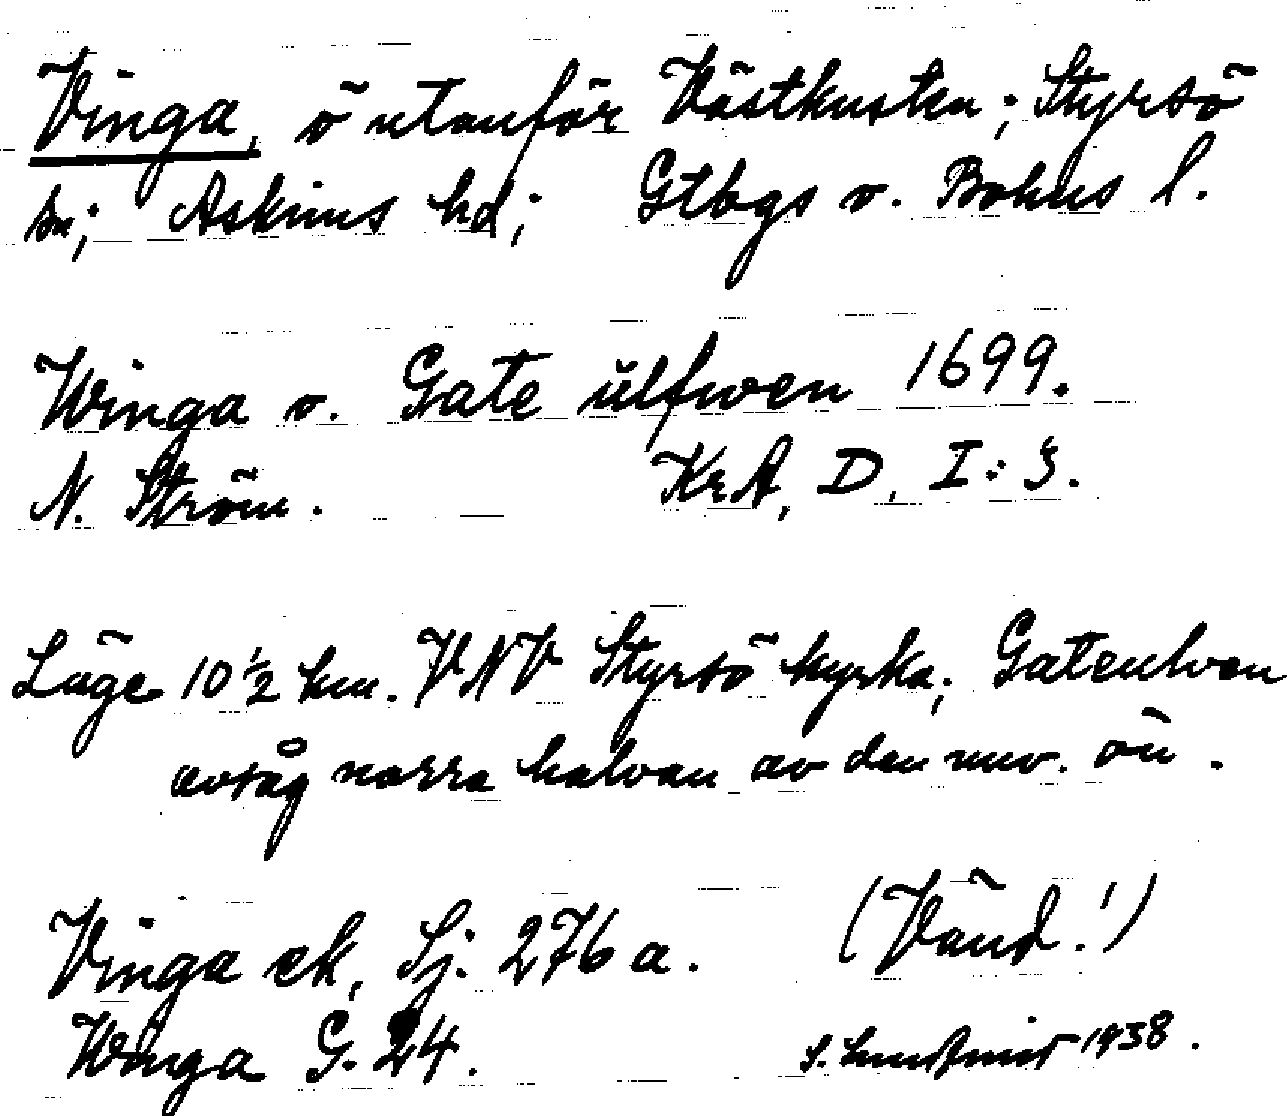 Vinga, ö utanför Västkusten; Styrsö
sn; Askims hd; Gtbgs o. Bohus l.
Winga o. Gate ülfwen 1699.
N. Ström. KrA, D, I:3.
Läge 10 ½ km. VNV Styrsö kyrka; Gatenlven
avsåg norra halvan av den nuv. ön.
Vinga ek, Sj. 276 a. (Vänd!)
Winga G. 24. 1938.